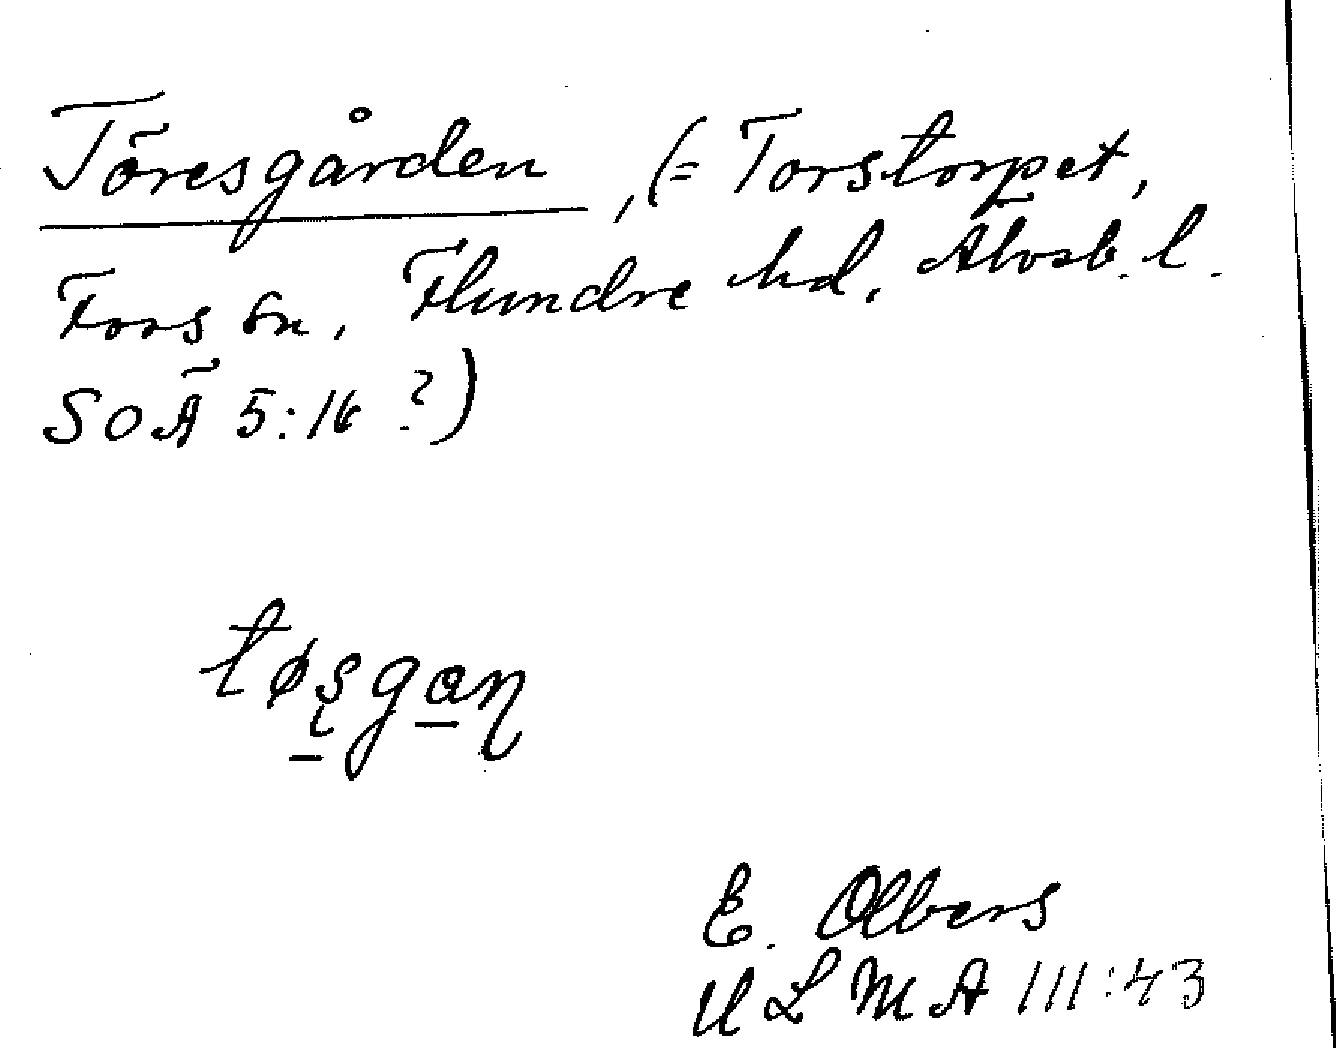 Töresgården, (= Torstorpet,
Fors sn, Flundre hd, Älvsb. l.
SOÄ 5:16 ?)
tøʂgan̥
E. Olbers
ULMA 111:43